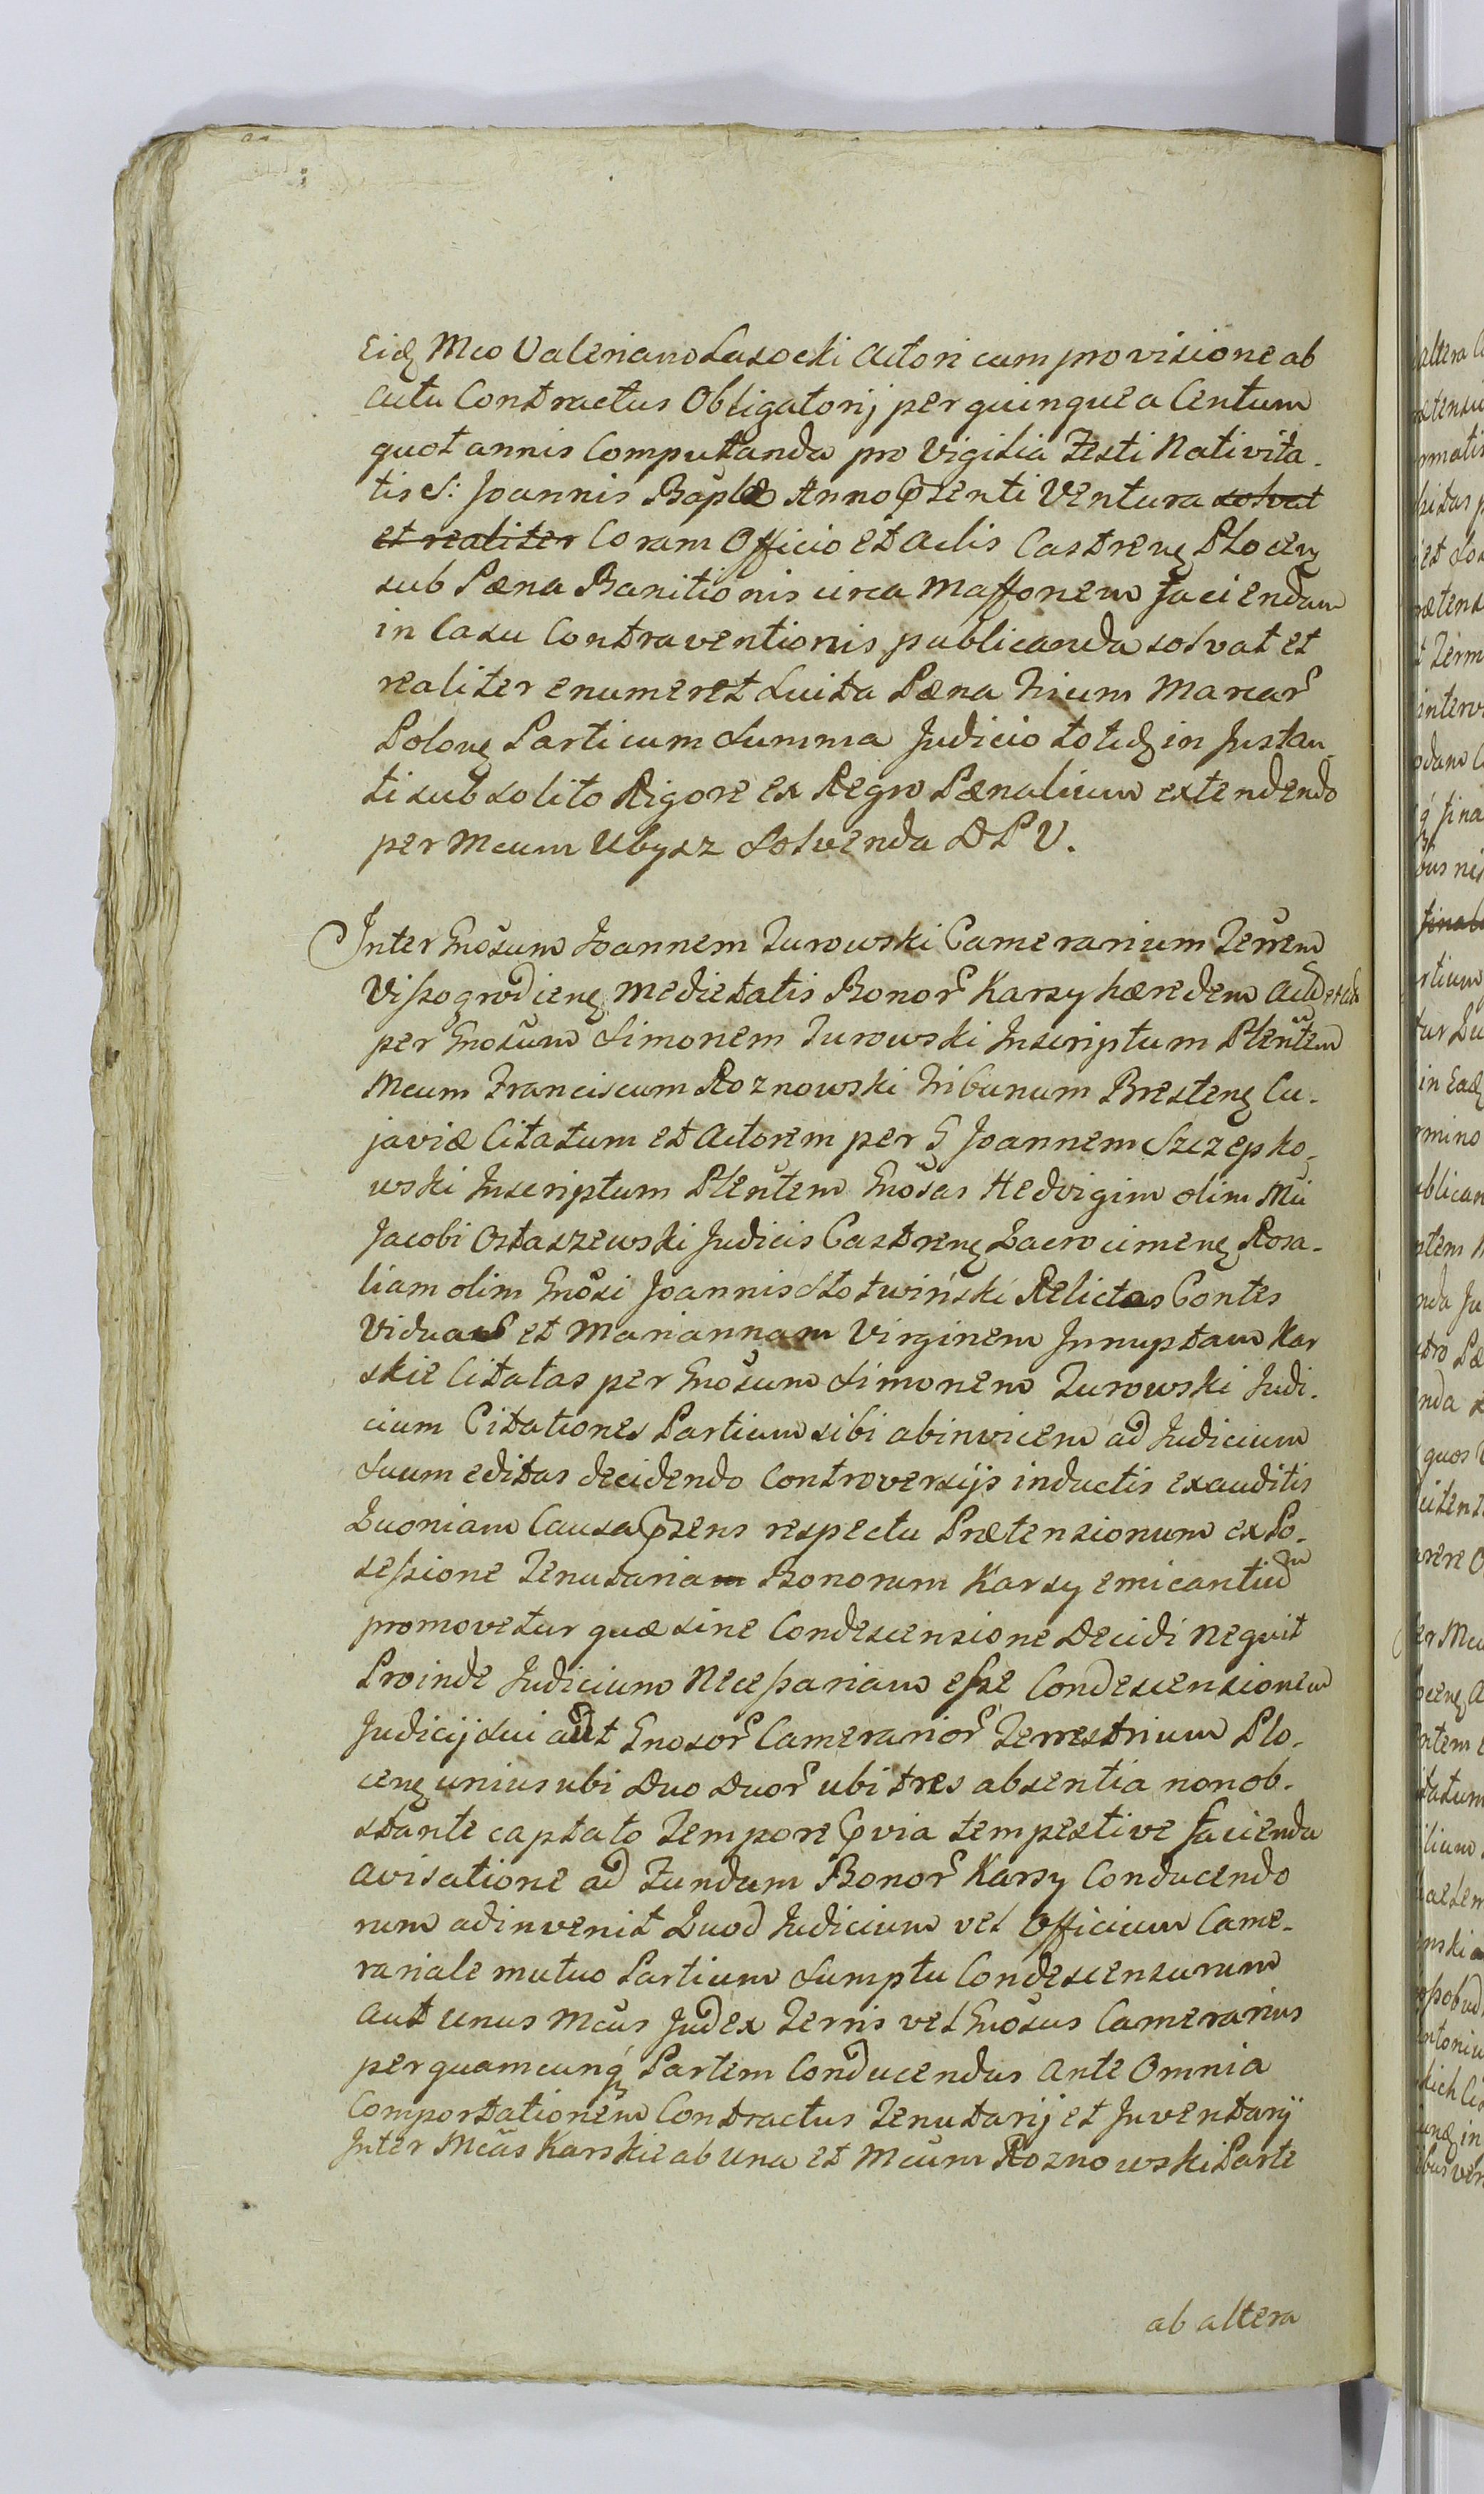 Eidꝫ Mco Valeriano Lasocki Actori cum provisione ab
actu Contractus Obligatorij per quinque a Centum
quot annis Computanda pro Vigilia Festi Nativita-
tis S: Joannis Bapłæ Anno Pꝛsenti Ventura solvat
et realiter Coram Officio et Actis Castrenꝫ Plocenꝫ
sub Pæna Banitionis circa Maffonem faciendam
in Casu Contraventionis publicanda solvat et
realiter enumeret Luita Pæna trium Marcar
Polonꝫ Parti cum Summa Judicio totidꝫ in Instan-
ti sub solito Rigore ex Regro Pænalium extendendo
per Mcum Ubysz Solvenda D P V.
Inter Gnosum Joannem Turowski Camerarium Terrem
Vissogrodienꝫ medietatis Bonor Karsy hæredem
per Gnosum Simonem Turowski Inscriptum Plentem
Mcum Franciscum Roznowski Tribunum Brestenꝫ Cu-
javiæ Citatum et Actorem per G Joannem Szczepko-
wski Inscriptum Plentem Gnosas Hedvigim olim Mci
Jacobi Ostaszewski Judicis Castrenꝫ Zacrocimenꝫ Rosa-
liam olim Gnosi Joannis Słotwiński Relictas Contes
Viduas et Mariannam Virginem Innuptam Kar
skie Citatas per Gnosum Simonem Turowski Judi-
cium Citationes Partium sibi abinvicem ad Judicium
Suum editas decidendo Controversijs inductis exauditis
Quoniam Causa Pꝛsens respectu Prætensionum ex Po-
sessione Tenutariam Bonorum Karsy emicantium
promovetur quæ sine Condescensione Decidi nequit
Proinde Judicium Necessariam esse Condescensionem
Judicij sui aut Gnosor Camerarior Terrestrium Plo-
cenꝫ unius ubi Duo Duor ubi tres absentia non ob-
stante captato Tempore Pꝛvia tempestive facienda
avisatione ad Fundum Bonor Karsy Conducendo
rum adinvenit Quod Judicium vel Officium Came-
rariale mutuo Partium Sumptu Condescensurum
aut unus Mcus Judex Terris vel Gnosus Camerarius
per quamcunq Partem Conducendus ante Omnia
Comportationem Contractus Tenutarij et Inventarij
Inter Mcas Karskie ab una et Mcum Roznowski Parte
ab altera